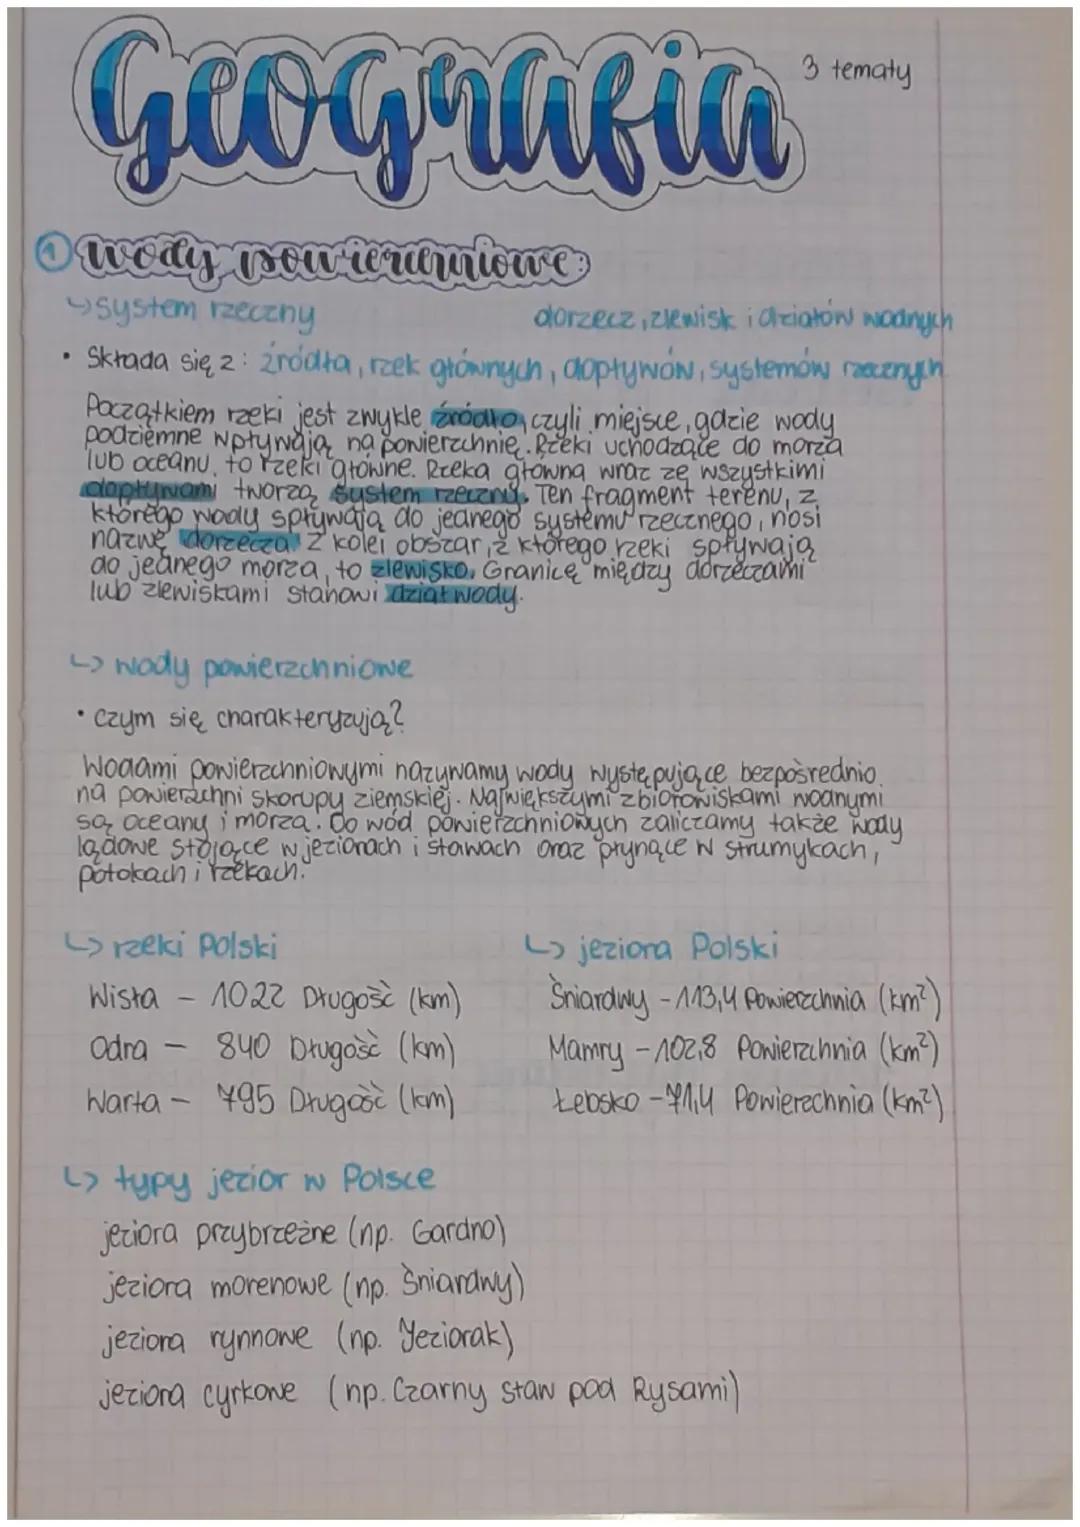 Geografia
3 tematy
1 wody powierzchniowe:
↳ system rzeczny
dorzecz, zlewisk i działów wodnych
• Składa się z: źródła, rzek głównych, dopływów, systemów rzecznych
Początkiem rzeki jest zwykle źródło, czyli miejsce, gdzie wody
podziemne wpływają na powierzchnię. Rzeki uchodzące do morza
lub oceanu, to rzeki główne. Rzeka główna wraz ze wszystkimi
dopływami tworzą system rzeczny. Ten fragment terenu, z
którego wody spływają do jednego systemu rzecznego, nosi
nazwę dorzecza. Z kolei obszar, z którego rzeki spływają
do jednego morza, to zlewisko. Granicę między dorzeczami
lub zlewiskami stanowi dział wody.
↳ wody powierzchniowe
• czym się charakteryzują?
Wodami powierzchniowymi nazywamy wody występujące bezpośrednio
na powierzchni skorupy ziemskiej. Największymi zbiorowiskami wodnymi
są oceany i morza. Do wód powierzchniowych zaliczamy także wody
lądowe stojące w jeziorach i stawach oraz płynące w strumykach,
potokach i rzekach.
↳ rzeki Polski
Wisła – 1022 Długość (km)
Odra – 840 Długość (km)
Warta – 795 Długość (km)
↳ jeziora Polski
Śniardwy – 113,4 Powierzchnia (km²)
Mamry – 102,8 Powierzchnia (km²)
Łebsko – 71,4 Powierzchnia (km²)
↳ typy jezior w Polsce
jeziora przybrzeżne (np. Gardno)
jeziora morenowe (np. Śniardwy)
jeziora rynnowe (np. Jeziorak)
jeziora cyrkowe (np. Czarny staw pod Rysami)